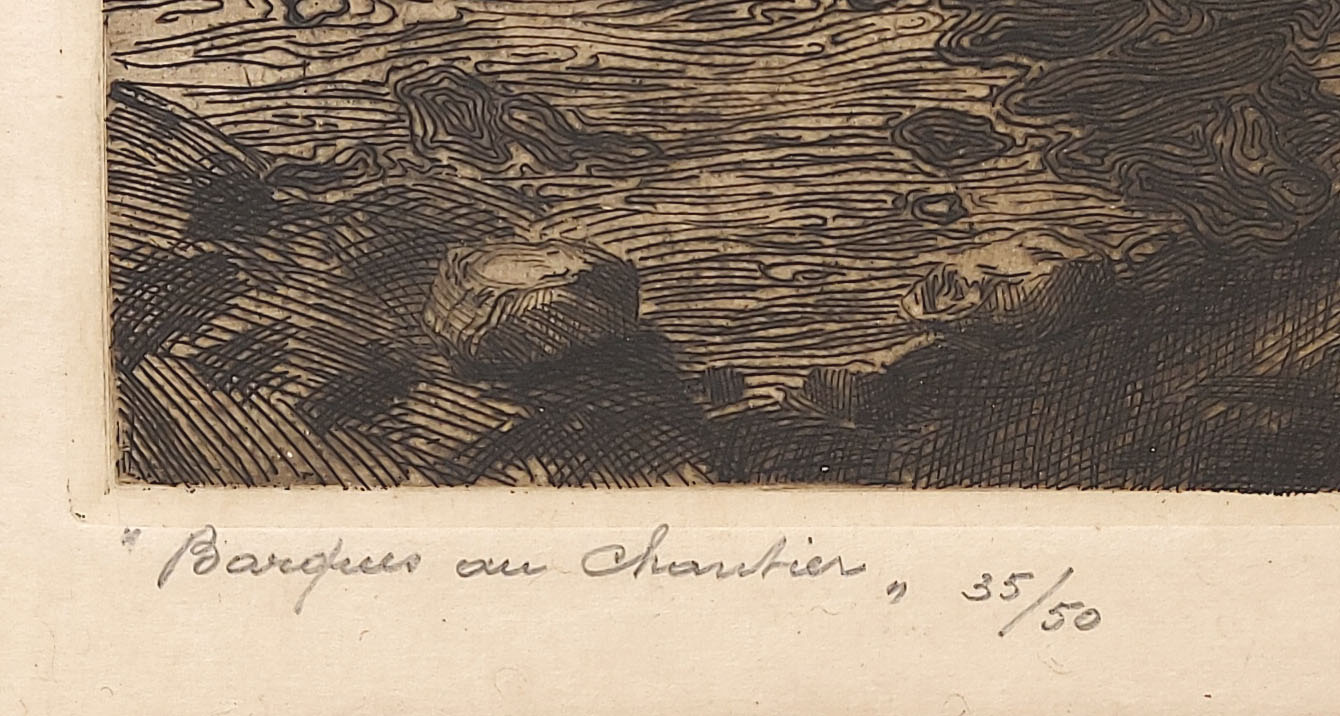 " Barques au Chantier " 35/50